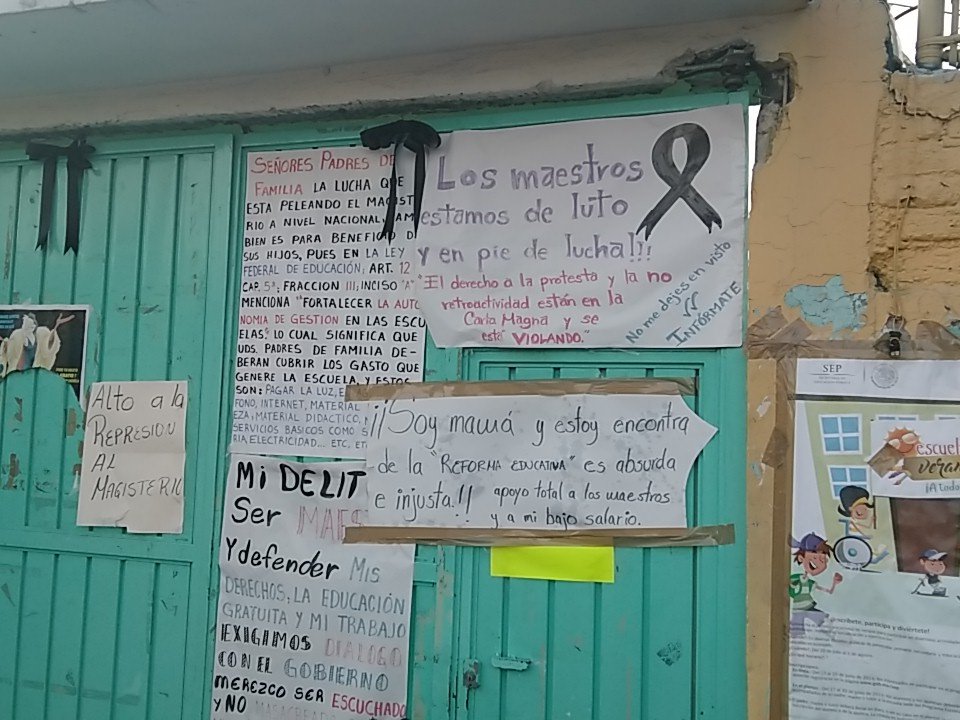 SEÑORES PADRES DE
FAMILIA LA LUCHA QUE
ESTA PELEANDO EL MAGIST
RIO A NIVEL NACIONAL, AM
BIEN ES PARA BENEFICIO D
SUS HIJOS, PUES EN LA LEY
FEDERAL DE EDUCACIÓN; ART. 12
CAP. 5º; FRACCION III; INCISO "A"
MENCIONA "FORTALECER LA AUTO
NOMIA DE GESTION EN LAS ESCU
ELAS". LO CUAL SIGNIFICA QUE
UDS. PADRES DE FAMILIA DE-
BERAN CUBRIR LOS GASTO QUE
GENERE LA ESCUELA, Y ESTOS
SON: PAGAR LA LUZ, E
FONO, INTERNET, MATERIAL
EZA, MATERIAL DIDACTICO,
SERVICIOS BASICOS COMO S
RIA ELECTRICIDAD... ETC, ET
Los maestros
estamos de luto
y en pie de lucha!!!
"El derecho a la protesta y la no
retroactividad están en la
Carta Magna y se
está VIOLANDO."
No me dejes en visto
INFÓRMATE
Alto a la
REPRESION
AL
MAGISTERIO
¡¡Soy mamá y estoy encontra
de la "REFORMA EDUCATIVA" es absurda
e injusta!! apoyo total a los maestros
y a mi bajo salario.
Mi DELIT
Ser MAES
Y defender Mis
DERECHOS, LA EDUCACIÓN
GRATUITA Y MI TRABAJO
EXIGIMOS DIALOGO
CON EL GOBIERNO
MEREZCO SER ESCUCHADO
y NO MASACREADO
SEP
escuel
veran
¡A todo
scríbete, participa y diviértete!